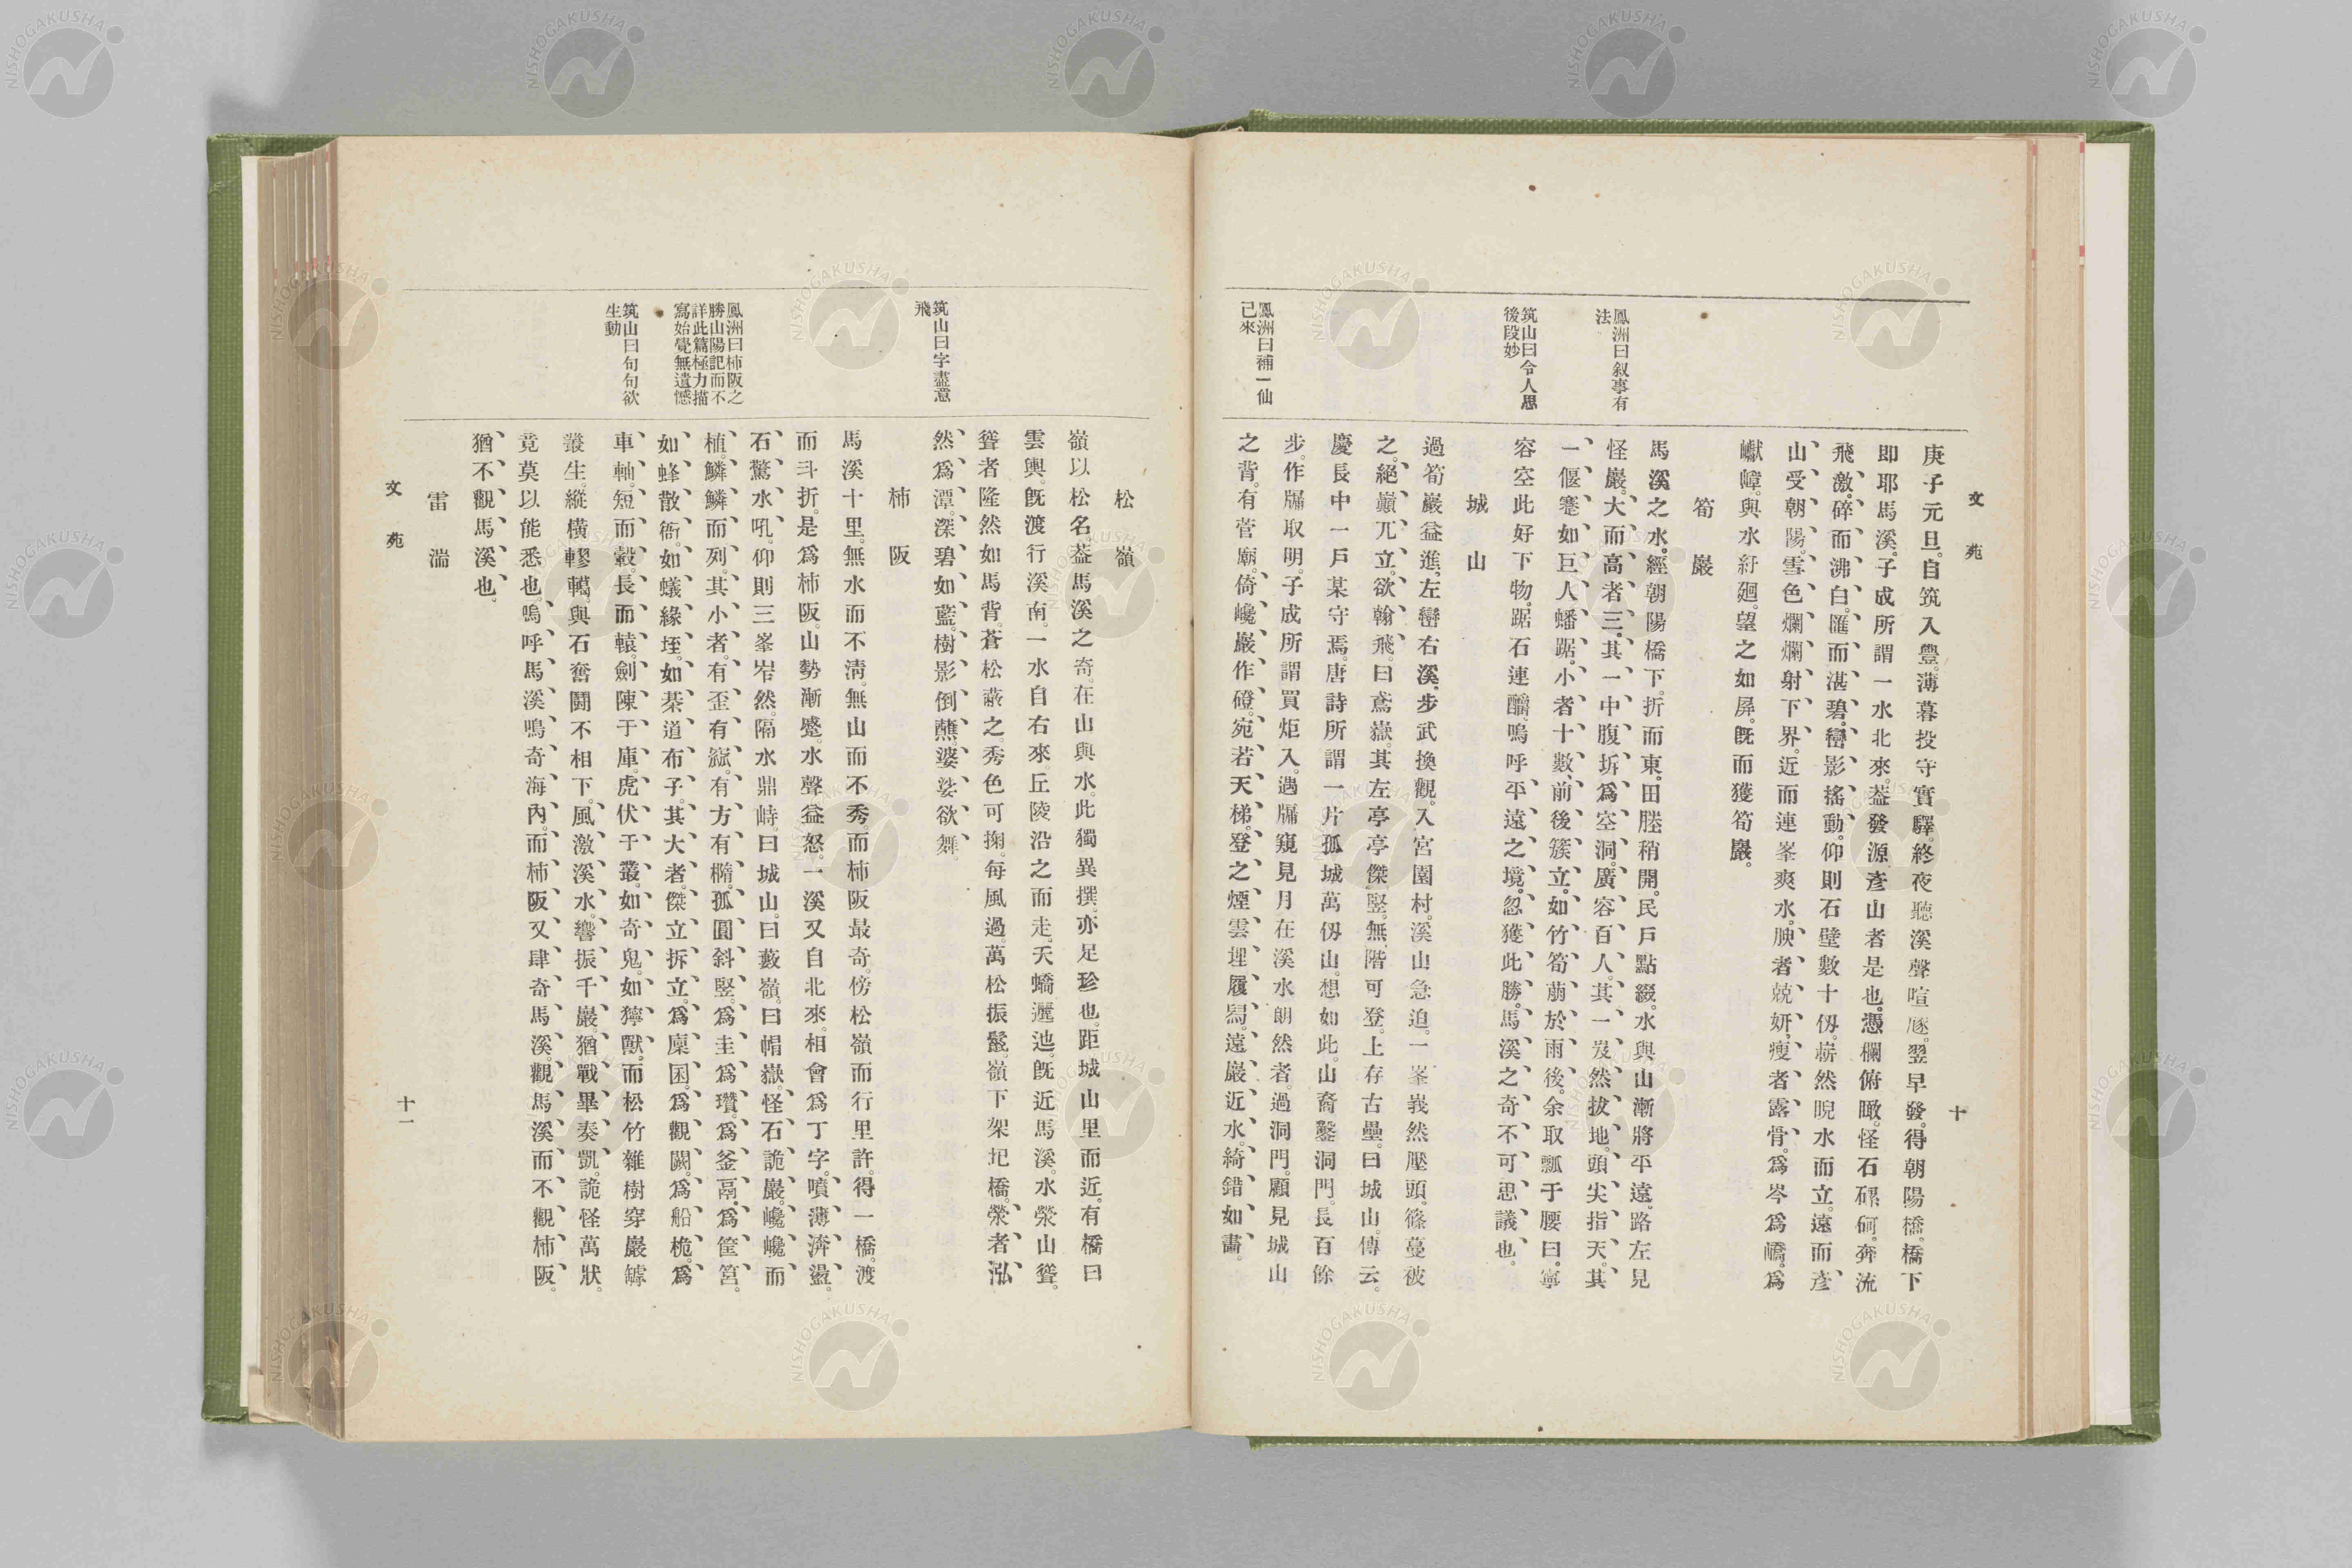 文苑
十
庚子元旦。自筑入豐。薄暮投守實驛。終夜聽溪聲喧豗。翌早發。得朝陽橋。橋下
即耶馬溪。子成所謂一水北來。蓋發源彥山者是也。憑欄俯瞰。怪石磥砢。奔流
飛激。碎而沸白。匯而湛碧。巒影搖動。仰則石壁數十仭。嶄然睨水而立。遠而彥
山受朝陽。雪色爛爛射下界。近而連峯爽水。腴者兢姸。瘦者露骨。爲岑爲嶠。爲
巘嶂。與水紆廻。望之如屛。旣而獲筍巖。
筍巖
鳳洲曰叙事有
法
馬溪之水。經朝陽橋下。折而東。田塍稍開。民戶點綴。水與山漸將平遠。路左見
怪巖。大而高者三。其一中腹坼爲空洞。廣容百人。其一岌然拔地。頭尖指天。其
一偃蹇如巨人蟠踞。小者十數。前後簇立。如竹筍萠於雨後。余取瓢于腰曰。寧
筑山曰令人思
後段妙
容空此好下物。踞石連釂。嗚呼平遠之境。忽獲此勝。馬溪之奇不可思議也。
城山
過筍巖益進。左巒右溪。步武換觀。入宮園村。溪山急迫。一峯峩然壓頭。篠蔓被
之。絕巓兀立。欲翰飛。曰鳶嶽。其左亭亭傑竪。無階可登。上存古壘。曰城山。傳云。
慶長中一戶某守焉。唐詩所謂一片孤城萬仭山。想如此。山裔鑿洞門。長百餘
步。作牖取明。子成所謂買炬入。遇牖窺見月在溪水朗然者。過洞門。顧見城山
鳳洲曰補一仙
已來
之背。有菅廟。倚巉巖作磴。宛若天梯。登之煙雲埋履舄。遠巖近水。綺錯如畵。
松嶺
嶺以松名。葢馬溪之奇。在山與水。此獨異撰。亦足珍也。距城山里而近。有橋曰
雲輿。旣渡行溪南。一水自右來。丘陵沿之而走。夭蟜邐迤。旣近馬溪。水滎山聳。
聳者隆然如馬背。蒼松蔽之。秀色可掬。每風過。萬松振鬣。嶺下架圯橋。滎者泓
筑山曰字盡意
飛
然爲潭。深碧如藍。樹影倒蘸。婆娑欲舞。
柿阪
馬溪十里。無水而不淸。無山而不秀。而柿阪最奇。傍松嶺而行里許。得一橋。渡
而斗折。是爲柿阪。山勢漸蹙。水聲益怒。一溪又自北來。相會爲丁字。噴薄濟盪。
石驚水吼。仰則三峯岝然。隔水鼎峙。曰城山。曰藪嶺。曰帽嶽。怪石詭巖。巉巉而
鳳洲曰柿阪之
勝山陽記而不
詳此篇極力描
寫始覺無遺憾
植。鱗鱗而列。其小者。有歪有窳。有方有橢。孤圓斜竪。爲圭爲瓚。爲釜鬲。爲筐筥。
如蜂散衙。如蟻緣垤。如棊道布子。其大者。傑立拆立。爲廩囷。爲觀闕。爲船桅。爲
筑山曰句句欲
生動
車軸。短而轂。長而轅。劍陳于庫。虎伏于叢。如奇鬼。如獰獸。而松竹雜樹穿巖罅
叢生。縱橫轇轕。與石奮鬪不相下。風激溪水。響振千巖。猶戰畢奏凱。詭怪萬狀。
竟莫以能悉也。嗚呼馬溪鳴奇海內。而柿阪又肆奇馬溪。觀馬溪而不觀柿阪。
猶不觀馬溪也。
雷湍
文苑
十一